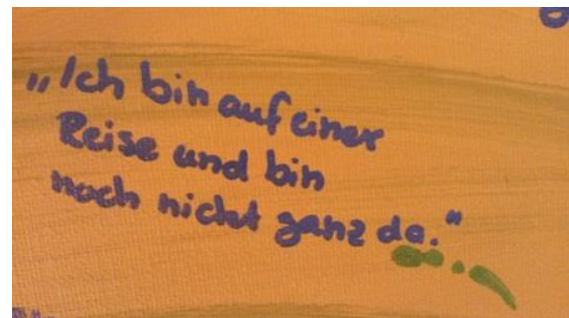 „Ich bin auf einer
Reise und bin
noch nicht ganz da.“